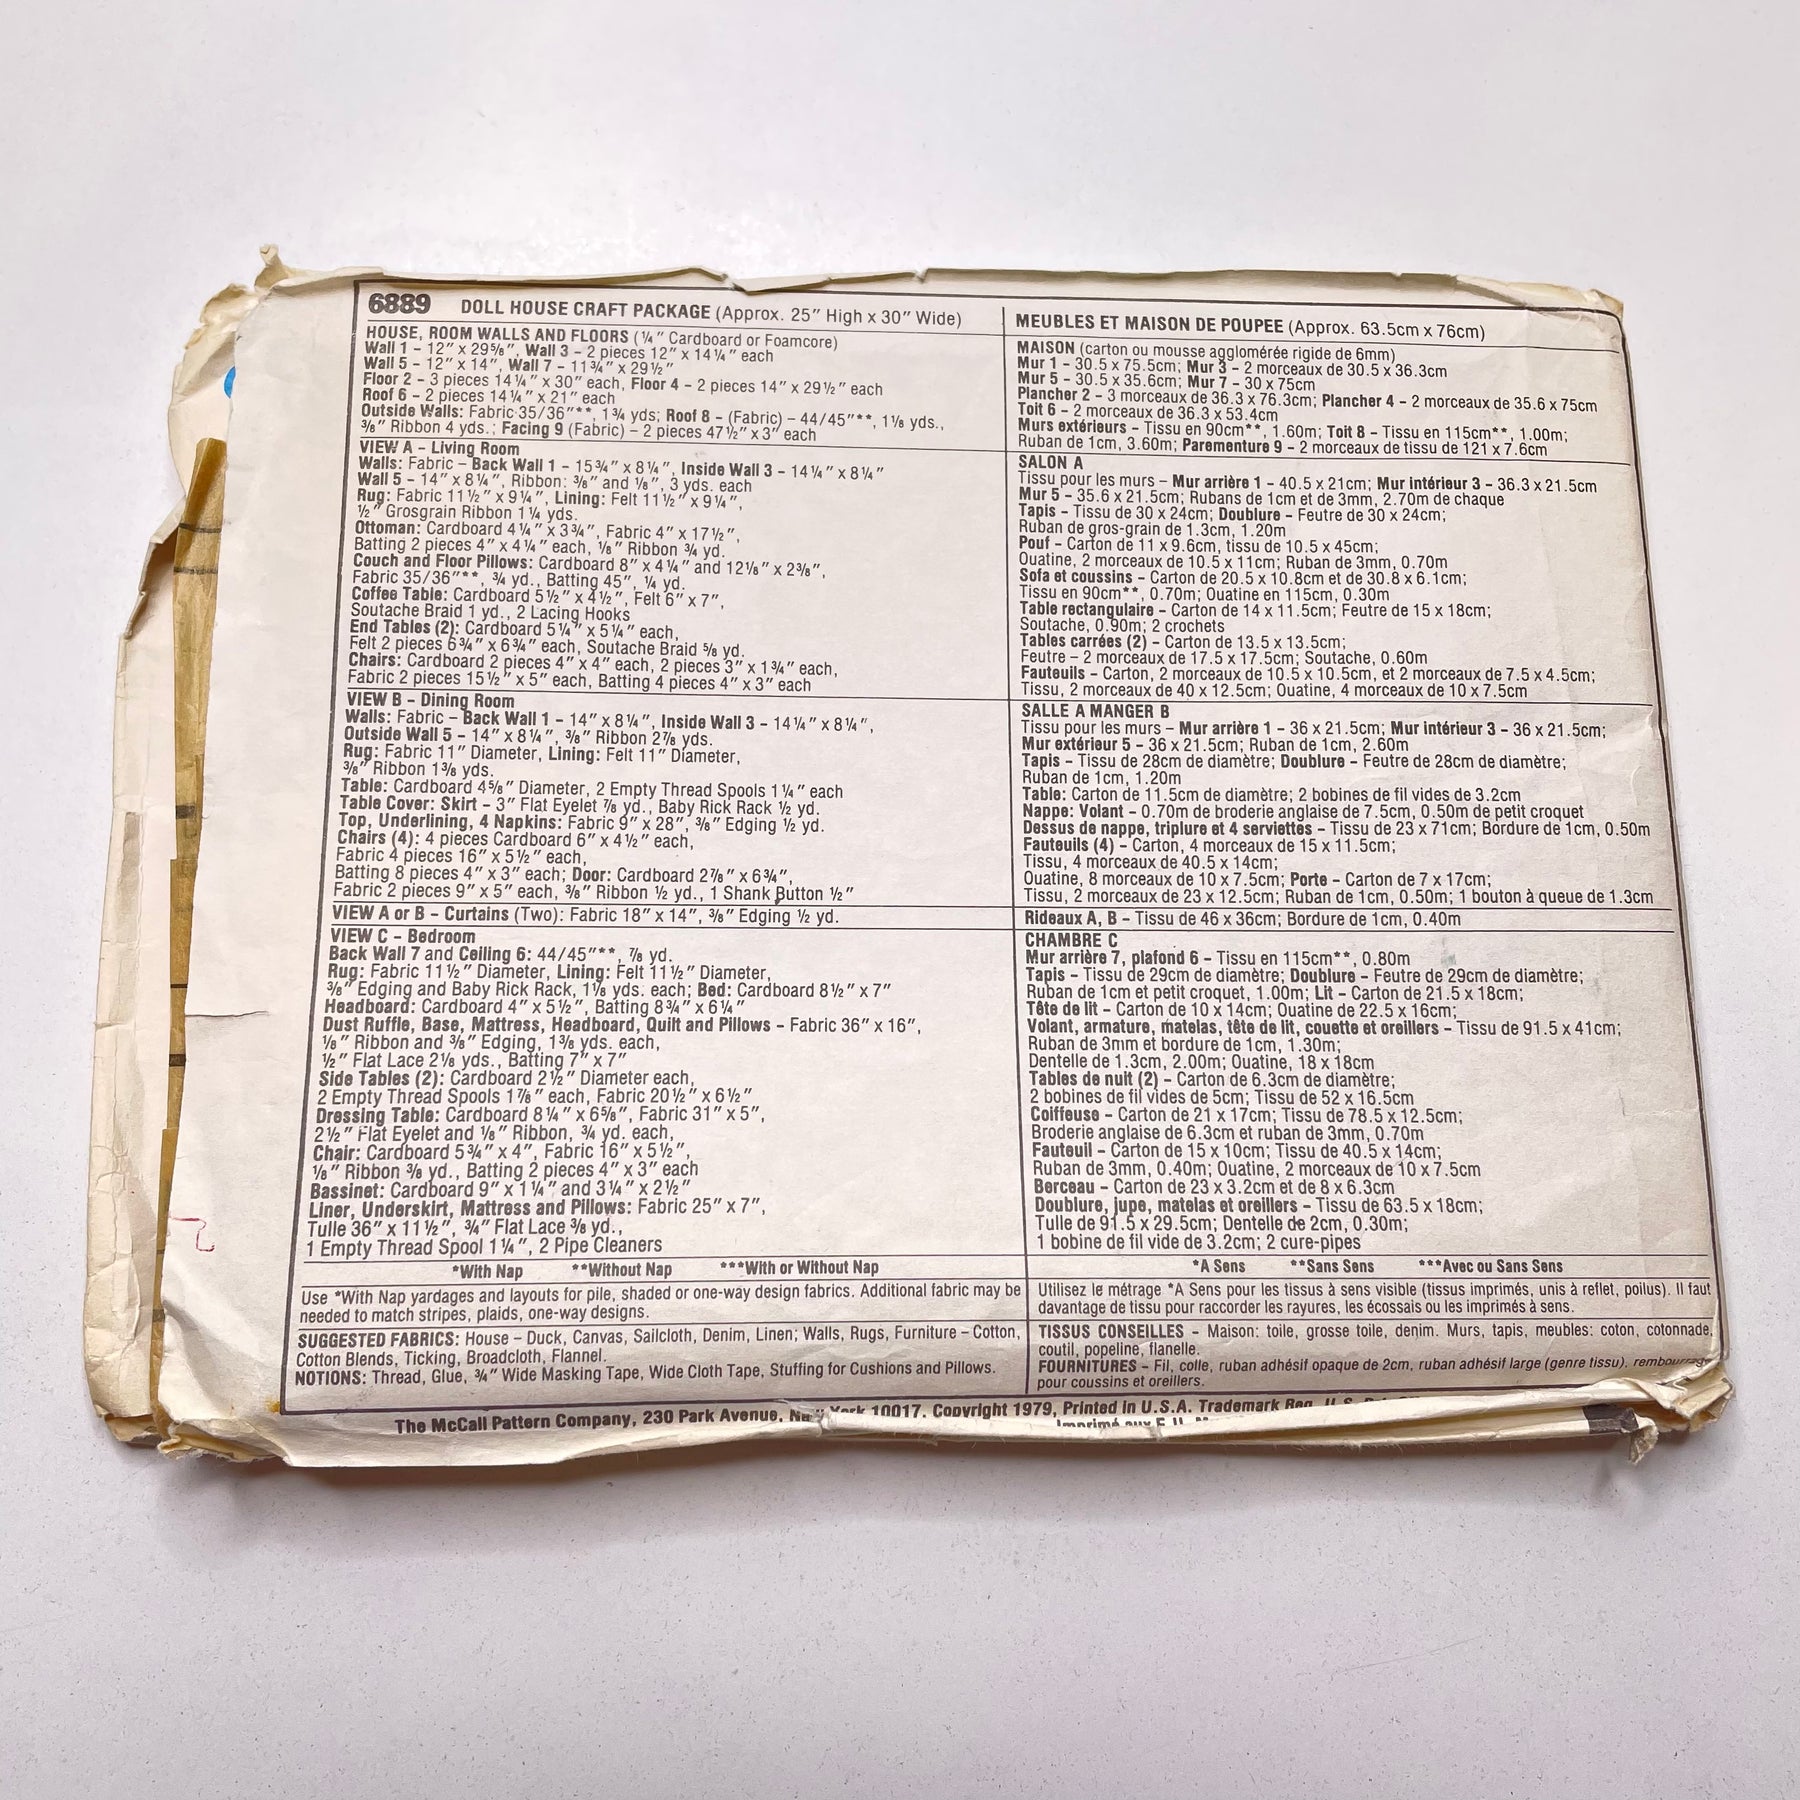 6889 DOLL HOUSE CRAFT PACKAGE (Approx. 25" High x 30" Wide)
HOUSE, ROOM WALLS AND FLOORS (¼" Cardboard or Foamcore)
Wall 1 – 12" x 29⅝", Wall 3 – 2 pieces 12" x 14¼" each
Wall 5 – 12" x 14", Wall 7 – 11¾" x 29½"
Floor 2 – 3 pieces 14¼" x 30" each, Floor 4 – 2 pieces 14" x 29½" each
Roof 6 – 2 pieces 14¼" x 21" each
Outside Walls: Fabric 35/36"**, 1¾ yds; Roof 8 – (Fabric) – 44/45"**, 1⅛ yds.,
⅜" Ribbon 4 yds.; Facing 9 (Fabric) – 2 pieces 47½" x 3" each
VIEW A – Living Room
Walls: Fabric – Back Wall 1 – 15¾" x 8¼", Inside Wall 3 – 14¼" x 8¼"
Wall 5 – 14" x 8¼", Ribbon: ⅜" and ⅛", 3 yds. each
Rug: Fabric 11½" x 9¼", Lining: Felt 11½" x 9¼",
½" Grosgrain Ribbon 1¼ yds.
Ottoman: Cardboard 4¼" x 3¾", Fabric 4" x 17½",
Batting 2 pieces 4" x 4¼" each, ⅛" Ribbon ¾ yd.
Couch and Floor Pillows: Cardboard 8" x 4¼" and 12⅛" x 2⅜",
Fabric 35/36"**, ¾ yd., Batting 45", ¼ yd.
Coffee Table: Cardboard 5½" x 4½", Felt 6" x 7",
Soutache Braid 1 yd., 2 Lacing Hooks
End Tables (2): Cardboard 5¼" x 5¼" each,
Felt 2 pieces 6¾" x 6¾" each, Soutache Braid ⅝ yd.
Chairs: Cardboard 2 pieces 4" x 4" each, 2 pieces 3" x 1¾" each,
Fabric 2 pieces 15½" x 5" each, Batting 4 pieces 4" x 3" each
VIEW B – Dining Room
Walls: Fabric – Back Wall 1 – 14" x 8¼", Inside Wall 3 – 14¼" x 8¼",
Outside Wall 5 – 14" x 8¼", ⅜" Ribbon 2⅞ yds.
Rug: Fabric 11" Diameter, Lining: Felt 11" Diameter,
⅜" Ribbon 1⅜ yds.
Table: Cardboard 4⅝" Diameter, 2 Empty Thread Spools 1¼" each
Table Cover: Skirt – 3" Flat Eyelet ⅞ yd., Baby Rick Rack ½ yd.
Top, Underlining, 4 Napkins: Fabric 9" x 28", ⅜" Edging ½ yd.
Chairs (4): 4 pieces Cardboard 6" x 4½" each,
Fabric 4 pieces 16" x 5½" each,
Batting 8 pieces 4" x 3" each; Door: Cardboard 2⅞" x 6¾",
Fabric 2 pieces 9" x 5" each, ⅜" Ribbon ½ yd., 1 Shank Button ½"
VIEW A or B – Curtains (Two): Fabric 18" x 14", ⅜" Edging ½ yd.
VIEW C – Bedroom
Back Wall 7 and Ceiling 6: 44/45"**, ⅞ yd.
Rug: Fabric 11½" Diameter, Lining: Felt 11½" Diameter,
⅜" Edging and Baby Rick Rack, 1⅛ yds. each; Bed: Cardboard 8½" x 7"
Headboard: Cardboard 4" x 5½", Batting 8¾" x 6¼"
Dust Ruffle, Base, Mattress, Headboard, Quilt and Pillows – Fabric 36" x 16",
⅛" Ribbon and ⅜" Edging, 1⅜ yds. each,
½" Flat Lace 2⅛ yds., Batting 7" x 7"
Side Tables (2): Cardboard 2½" Diameter each,
2 Empty Thread Spools 1⅞" each, Fabric 20½" x 6½"
Dressing Table: Cardboard 8¼" x 6⅝", Fabric 31" x 5",
2½" Flat Eyelet and ⅛" Ribbon, ¾ yd. each,
Chair: Cardboard 5¾" x 4", Fabric 16" x 5½",
⅛" Ribbon ⅜ yd., Batting 2 pieces 4" x 3" each
Bassinet: Cardboard 9" x 1¼" and 3¼" x 2½"
Liner, Underskirt, Mattress and Pillows: Fabric 25" x 7",
Tulle 36" x 11½", ¾" Flat Lace ⅜ yd.,
1 Empty Thread Spool 1¼", 2 Pipe Cleaners
*With Nap **Without Nap ***With or Without Nap
Use *With Nap yardages and layouts for pile, shaded or one-way design fabrics. Additional fabric may be
needed to match stripes, plaids, one-way designs.
SUGGESTED FABRICS: House – Duck, Canvas, Sailcloth, Denim, Linen; Walls, Rugs, Furniture – Cotton,
Cotton Blends, Ticking, Broadcloth, Flannel.
NOTIONS: Thread, Glue, ¾" Wide Masking Tape, Wide Cloth Tape, Stuffing for Cushions and Pillows.
MEUBLES ET MAISON DE POUPEE (Approx. 63.5cm x 76cm)
MAISON (carton ou mousse agglomérée rigide de 6mm)
Mur 1 – 30.5 x 75.5cm; Mur 3 – 2 morceaux de 30.5 x 36.3cm
Mur 5 – 30.5 x 35.6cm; Mur 7 – 30 x 75cm
Plancher 2 – 3 morceaux de 36.3 x 76.3cm; Plancher 4 – 2 morceaux de 35.6 x 75cm
Toit 6 – 2 morceaux de 36.3 x 53.4cm
Murs extérieurs – Tissu en 90cm**, 1.60m; Toit 8 – Tissu en 115cm**, 1.00m;
Ruban de 1cm, 3.60m; Parementure 9 – 2 morceaux de tissu de 121 x 7.6cm
SALON A
Tissu pour les murs – Mur arrière 1 – 40.5 x 21cm; Mur intérieur 3 – 36.3 x 21.5cm
Mur 5 – 35.6 x 21.5cm; Rubans de 1cm et de 3mm, 2.70m de chaque
Tapis – Tissu de 30 x 24cm; Doublure – Feutre de 30 x 24cm;
Ruban de gros-grain de 1.3cm, 1.20m
Pouf – Carton de 11 x 9.6cm, tissu de 10.5 x 45cm;
Ouatine, 2 morceaux de 10.5 x 11cm; Ruban de 3mm, 0.70m
Sofa et coussins – Carton de 20.5 x 10.8cm et de 30.8 x 6.1cm;
Tissu en 90cm**, 0.70m; Ouatine en 115cm, 0.30m
Table rectangulaire – Carton de 14 x 11.5cm; Feutre de 15 x 18cm;
Soutache, 0.90m; 2 crochets
Tables carrées (2) – Carton de 13.5 x 13.5cm;
Feutre – 2 morceaux de 17.5 x 17.5cm; Soutache, 0.60m
Fauteuils – Carton, 2 morceaux de 10.5 x 10.5cm, et 2 morceaux de 7.5 x 4.5cm;
Tissu, 2 morceaux de 40 x 12.5cm; Ouatine, 4 morceaux de 10 x 7.5cm
SALLE A MANGER B
Tissu pour les murs – Mur arrière 1 – 36 x 21.5cm; Mur intérieur 3 – 36 x 21.5cm;
Mur extérieur 5 – 36 x 21.5cm; Ruban de 1cm, 2.60m
Tapis – Tissu de 28cm de diamètre; Doublure – Feutre de 28cm de diamètre;
Ruban de 1cm, 1.20m
Table: Carton de 11.5cm de diamètre; 2 bobines de fil vides de 3.2cm
Nappe: Volant – 0.70m de broderie anglaise de 7.5cm, 0.50m de petit croquet
Dessus de nappe, triplure et 4 serviettes – Tissu de 23 x 71cm; Bordure de 1cm, 0.50m
Fauteuils (4) – Carton, 4 morceaux de 15 x 11.5cm;
Tissu, 4 morceaux de 40.5 x 14cm;
Ouatine, 8 morceaux de 10 x 7.5cm; Porte – Carton de 7 x 17cm;
Tissu, 2 morceaux de 23 x 12.5cm; Ruban de 1cm, 0.50m; 1 bouton à queue de 1.3cm
Rideaux A, B – Tissu de 46 x 36cm; Bordure de 1cm, 0.40m
CHAMBRE C
Mur arrière 7, plafond 6 – Tissu en 115cm**, 0.80m
Tapis – Tissu de 29cm de diamètre; Doublure – Feutre de 29cm de diamètre;
Ruban de 1cm et petit croquet, 1.00m; Lit – Carton de 21.5 x 18cm;
Tête de lit – Carton de 10 x 14cm; Ouatine de 22.5 x 16cm;
Volant, armature, matelas, tête de lit, couette et oreillers – Tissu de 91.5 x 41cm;
Ruban de 3mm et bordure de 1cm, 1.30m;
Dentelle de 1.3cm, 2.00m; Ouatine, 18 x 18cm
Tables de nuit (2) – Carton de 6.3cm de diamètre;
2 bobines de fil vides de 5cm; Tissu de 52 x 16.5cm
Coiffeuse – Carton de 21 x 17cm; Tissu de 78.5 x 12.5cm;
Broderie anglaise de 6.3cm et ruban de 3mm, 0.70m
Fauteuil – Carton de 15 x 10cm; Tissu de 40.5 x 14cm;
Ruban de 3mm, 0.40m; Ouatine, 2 morceaux de 10 x 7.5cm
Berceau – Carton de 23 x 3.2cm et de 8 x 6.3cm
Doublure, jupe, matelas et oreillers – Tissu de 63.5 x 18cm;
Tulle de 91.5 x 29.5cm; Dentelle de 2cm, 0.30m;
1 bobine de fil vide de 3.2cm; 2 cure-pipes
*A Sens **Sans Sens ***Avec ou Sans Sens
Utilisez le métrage *A Sens pour les tissus à sens visible (tissus imprimés, unis à reflet, poilus). Il faut
davantage de tissu pour raccorder les rayures, les écossais ou les imprimés à sens.
TISSUS CONSEILLES – Maison: toile, grosse toile, denim. Murs, tapis, meubles: coton, cotonnade,
coutil, popeline, flanelle.
FOURNITURES – Fil, colle, ruban adhésif opaque de 2cm, ruban adhésif large (genre tissu), rembourrage
pour coussins et oreillers.
The McCall Pattern Company, 230 Park Avenue, New York 10017, Copyright 1979, Printed in U.S.A. Trademark Reg. U.S.
Imprimé aux E.U.